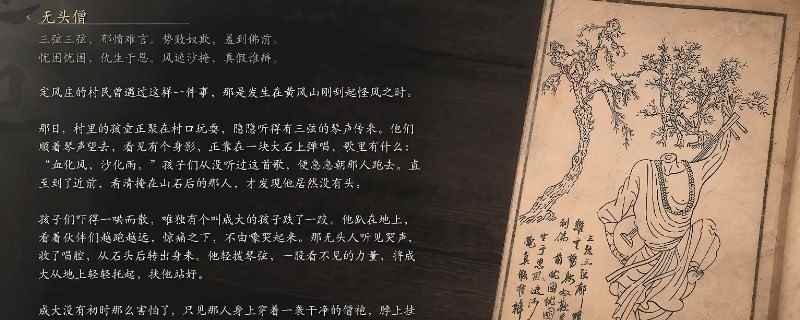 无头僧
三弦三弦，那情难言。势败奴欺，羞到佛前。
忧困忧困，仇生于恩。风遮沙掩，真假谁辨。
定风庄的村民曾遇过这样一件事，那是发生在黄风山刚刮起怪风之时。
那日，村里的孩童正聚在村口玩耍，隐隐听得有三弦的琴声传来。他们
顺着琴声望去，看见有个身影，正靠在一块大石上弹唱，歌里有什么：
“血化风，沙化雨。”孩子们从没听过这首歌，便急急朝那人跑去。直
至到了近前，看清掩在山石后的那人，才发现他居然没有头。
孩子们吓得一哄而散，唯独有个叫成大的孩子跌了一跤。他趴在地上，
看着伙伴们越跑越远，惊痛之下，不由嚎哭起来。那无头人听见哭声，
收了唱腔，从石头后转出身来。他轻拨琴弦，一股看不见的力量，将成
大从地上轻轻托起，扶他站好。
成大没有初时那么害怕了，只见那人身上穿着一袭干净的僧袍，脖上挂